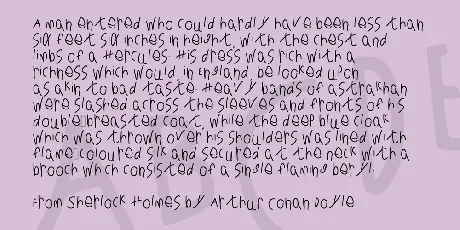 A man entered who could hardly have been less than
six feet six inches in height, with the chest and
limbs of a Hercules. His dress was rich with a
richness which would, in England, be looked upon
as akin to bad taste. Heavy bands of astrakhan
were slashed across the sleeves and fronts of his
double-breasted coat, while the deep blue cloak
which was thrown over his shoulders was lined with
flame-coloured silk and secured at the neck with a
brooch which consisted of a single flaming beryl.
From Sherlock Holmes by Arthur Conan Doyle